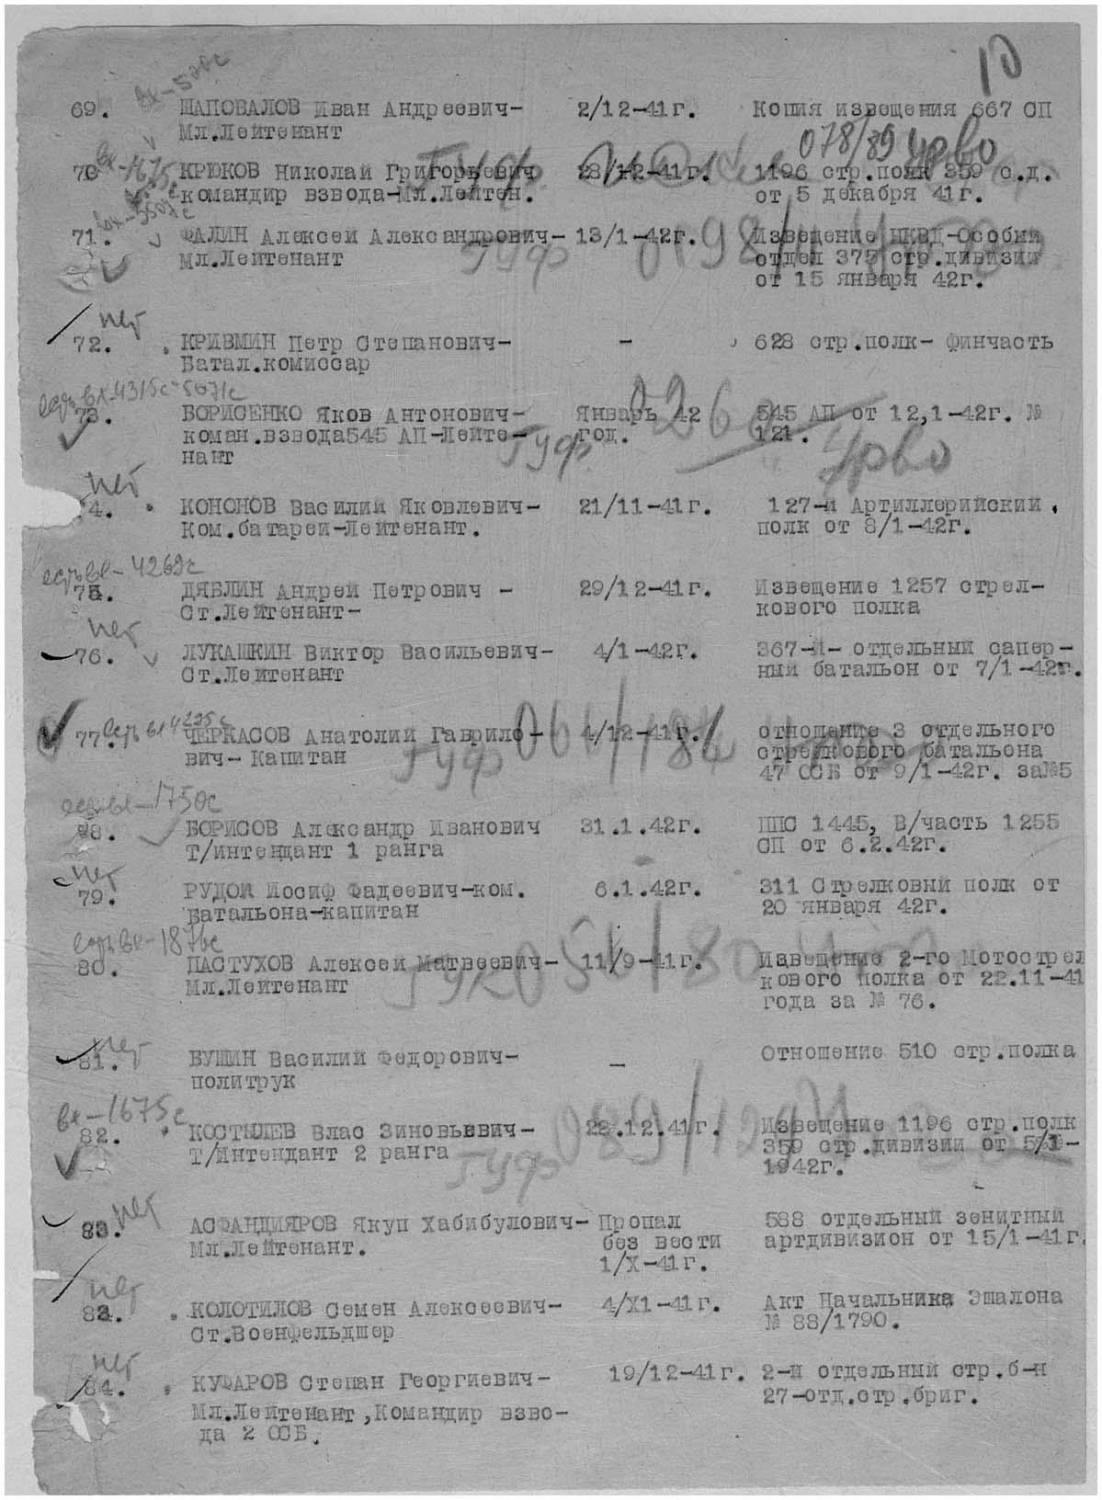 10
вх-520с
69. ШАПОВАЛОВ Иван Андреевич- 2/12-41г. Копия извещения 667 СП
Мл.Лейтенант
078/89 УрВО
вх-1675с
70 КРЮКОВ Николай Григорьевич 28/12-41г. 1196 стр.полк 359 с.д.
командир взвода-Мл.Лейтен. от 5 декабря 41г.
ГУФ
71. ФАЛИН Алексей Александрович- 13/1-42г. Извещение НКВД-Особый
Мл.Лейтенант отдел 375 стр.дивизии
от 15 января 42г.
ГУФ
нет
72. КРИВМИН Петр Степанович- - 628 стр.полк- Финчасть
Батал.комиссар
есть вх-4315с-5071с
73. БОРИСЕНКО Яков Антонович- Январь 42 545 АП от 12,1-42г. №
коман.взвода545 АП-Лейте- год. 121.
нант
ГУФ 0260 УрВО
нет
4. КОНОНОВ Василий Яковлевич- 21/11-41г. 127-й Артиллерийский
Ком.батареи-Лейтенант. полк от 8/1-42г.
есть вх-4269с
75. ДЯБЛИН Андрей Петрович - 29/12-41г. Извещение 1257 стрел-
Ст.Лейтенант- кового полка
нет
76. ЛУКАШКИН Виктор Васильевич- 4/1-42г. 367-й- отдельный сапер-
Ст.Лейтенант ный батальон от 7/1-42г.
есть вх4295с
77. ЧЕРКАСОВ Анатолий Гаврило- 4/12-41г. отношение 3 отдельного
вич- Капитан стрелкового батальона
47 ОСБ от 9/1-42г. за№5
ГУФ 061/184
есть вх-1750с
78. БОРИСОВ Александр Иванович 31.1.42г. ППС 1445, В/часть 1255
Т/интендант 1 ранга СП от 6.2.42г.
нет
79. РУДОЙ Иосиф Фадеевич-ком. 6.1.42г. 311 Стрелковый полк от
Батальона-капитан 20 января 42г.
есть вх-1876с
80. ПАСТУХОВ Алексей Матвеевич- 11/9-41г. Извещение 2-го Мотострел
Мл.Лейтенант кового полка от 22.11-41
года за № 76.
051/80
нет
81. БУШИН Василий Федорович- - Отношение 510 стр.полка
политрук
вх-1675с
82. КОСТЫЛЕВ Влас Зиновьевич- 28.12.41г. Извещение 1196 стр.полк
Т/Интендант 2 ранга 359 стр.дивизии от 5/1-
1942г.
ГУФ
нет
83. АСФАНДИЯРОВ Якуп Хабибулович- Пропал 588 отдельный зенитный
Мл.Лейтенант. без вести артдивизион от 15/1-41г.
1/X-41г.
нет
83. КОЛОТИЛОВ Семен Алексеевич- 4/X1-41г. Акт Начальника Эшалона
Ст.Военфельдшер № 88/1790.
нет
84. КУФАРОВ Степан Георгиевич- 19/12-41г. 2-й отдельный стр.б-н
Мл.Лейтенант,Командир взво- 27-отд.стр.бриг.
да 2 ОСБ.